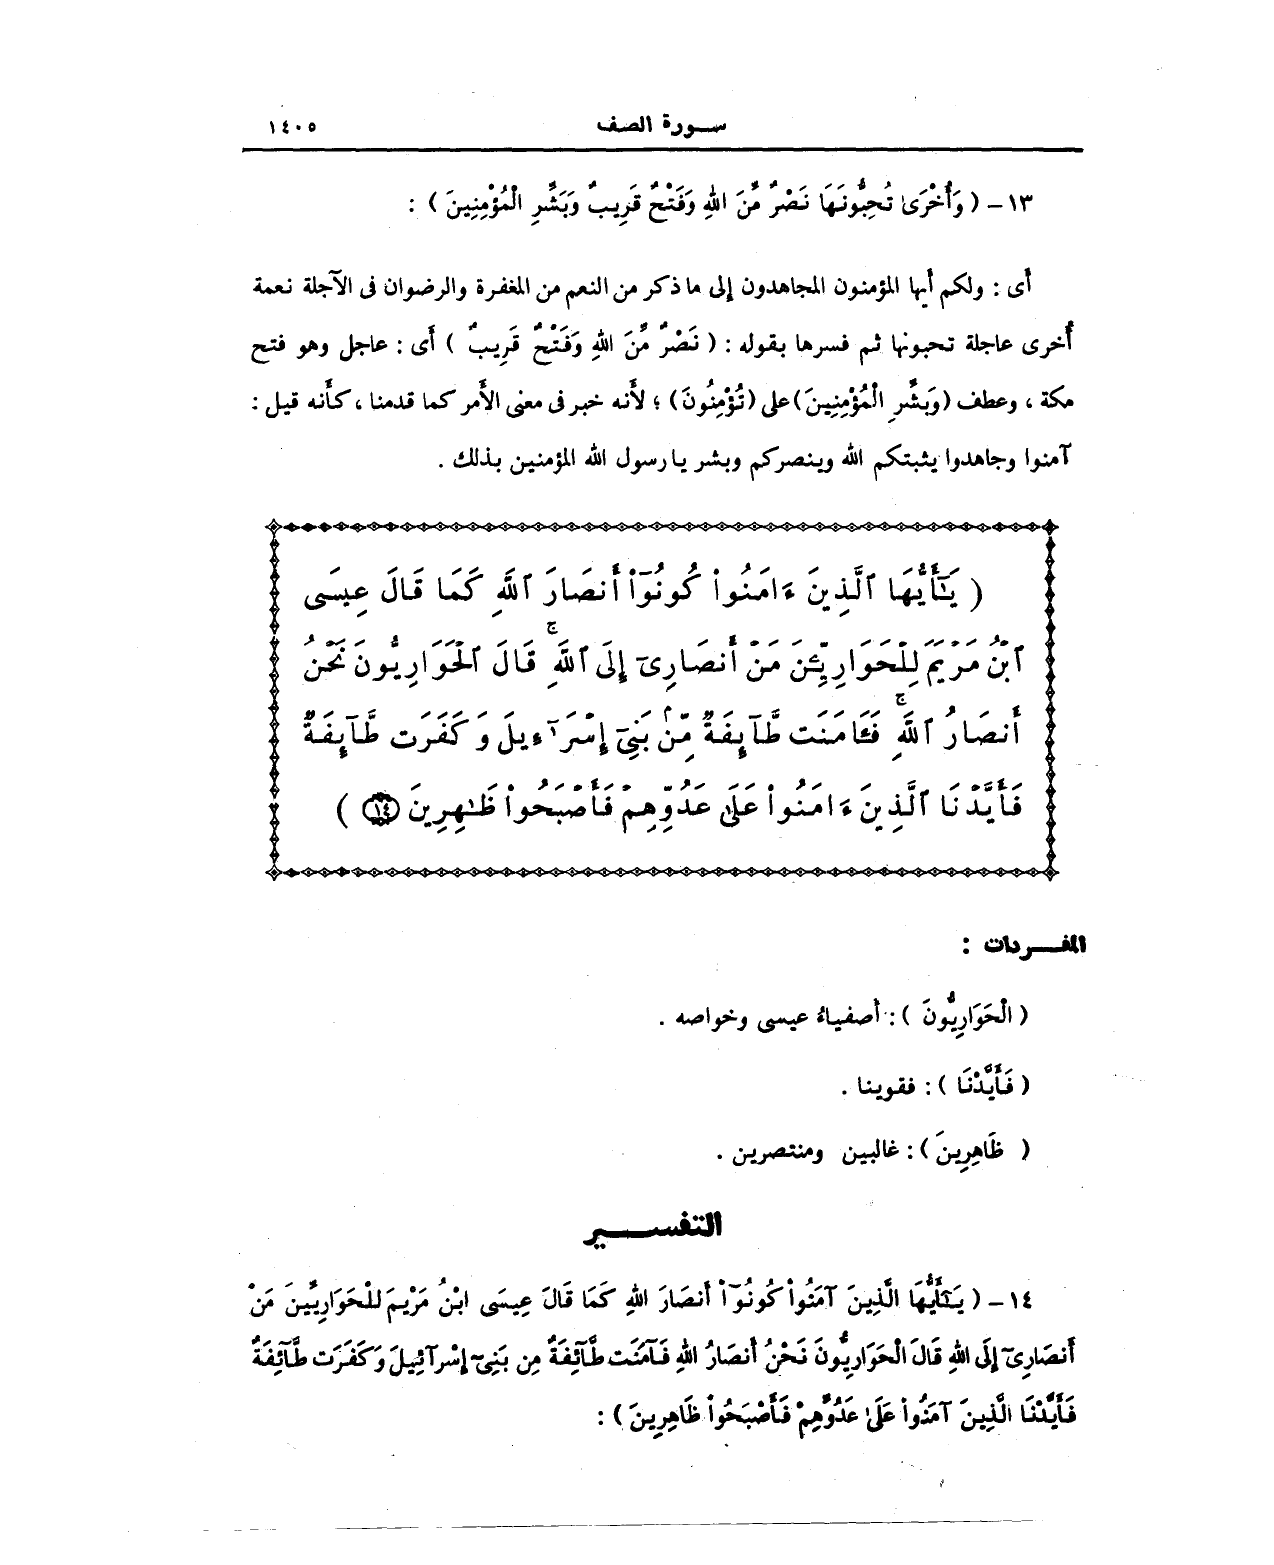 سورة الصف ١٤٠٥
١٣ - ( وَأُخْرَىٰ تُحِبُّونَهَا نَصْرٌ مِّنَ اللهِ وَفَتْحٌ قَرِيبٌ وَبَشِّرِ الْمُؤْمِنِينَ ) :
أى : ولكم أيها المؤمنون المجاهدون إلى ما ذكر من النعم من المغفرة والرضوان فى الآجلة نعمة
أُخرى عاجلة تحبونها ثم فسرها بقوله : ( نَصْرٌ مِّنَ اللهِ وَفَتْحٌ قَرِيبٌ ) أى : عاجل وهو فتح
مكة ، وعطف ( وَبَشِّرِ الْمُؤْمِنِينَ ) على ( تُؤْمِنُونَ ) ؛ لأنه خبر فى معنى الأمر كما قدمنا ، كأنه قيل :
آمنوا وجاهدوا يثبتكم الله وينصركم وبشر يا رسول الله المؤمنين بذلك .
( يَـٰٓأَيُّهَا ٱلَّذِينَ ءَامَنُوا۟ كُونُوٓا۟ أَنصَارَ ٱللَّهِ كَمَا قَالَ عِيسَى
ٱبْنُ مَرْيَمَ لِلْحَوَارِيِّـۧنَ مَنْ أَنصَارِىٓ إِلَى ٱللَّهِ ۚ قَالَ ٱلْحَوَارِيُّونَ نَحْنُ
أَنصَارُ ٱللَّهِ ۚ فَـَٔامَنَت طَّآئِفَةٌ مِّنۢ بَنِىٓ إِسْرَٰٓءِيلَ وَكَفَرَت طَّآئِفَةٌ
فَأَيَّدْنَا ٱلَّذِينَ ءَامَنُوا۟ عَلَىٰ عَدُوِّهِمْ فَأَصْبَحُوا۟ ظَـٰهِرِينَ ١٤ )
المفردات :
( الْحَوَارِيُّونَ ) : أصفياءُ عيسى وخواصه .
( فَأَيَّدْنَا ) : فقوينا .
( ظَاهِرِينَ ) : غالبين ومنتصرين .
التفسير
١٤ - ( يَـٰٓأَيُّهَا الَّذِينَ آمَنُوا۟ كُونُوٓا۟ أَنصَارَ اللهِ كَمَا قَالَ عِيسَى ابْنُ مَرْيَمَ لِلْحَوَارِيِّينَ مَنْ
أَنصَارِىٓ إِلَى اللهِ قَالَ الْحَوَارِيُّونَ نَحْنُ أَنصَارُ اللهِ فَآمَنَت طَّآئِفَةٌ مِن بَنِىٓ إِسْرَآئِيلَ وَكَفَرَت طَّآئِفَةٌ
فَأَيَّدْنَا الَّذِينَ آمَنُوا۟ عَلَىٰ عَدُوِّهِمْ فَأَصْبَحُوا۟ ظَاهِرِينَ ) :